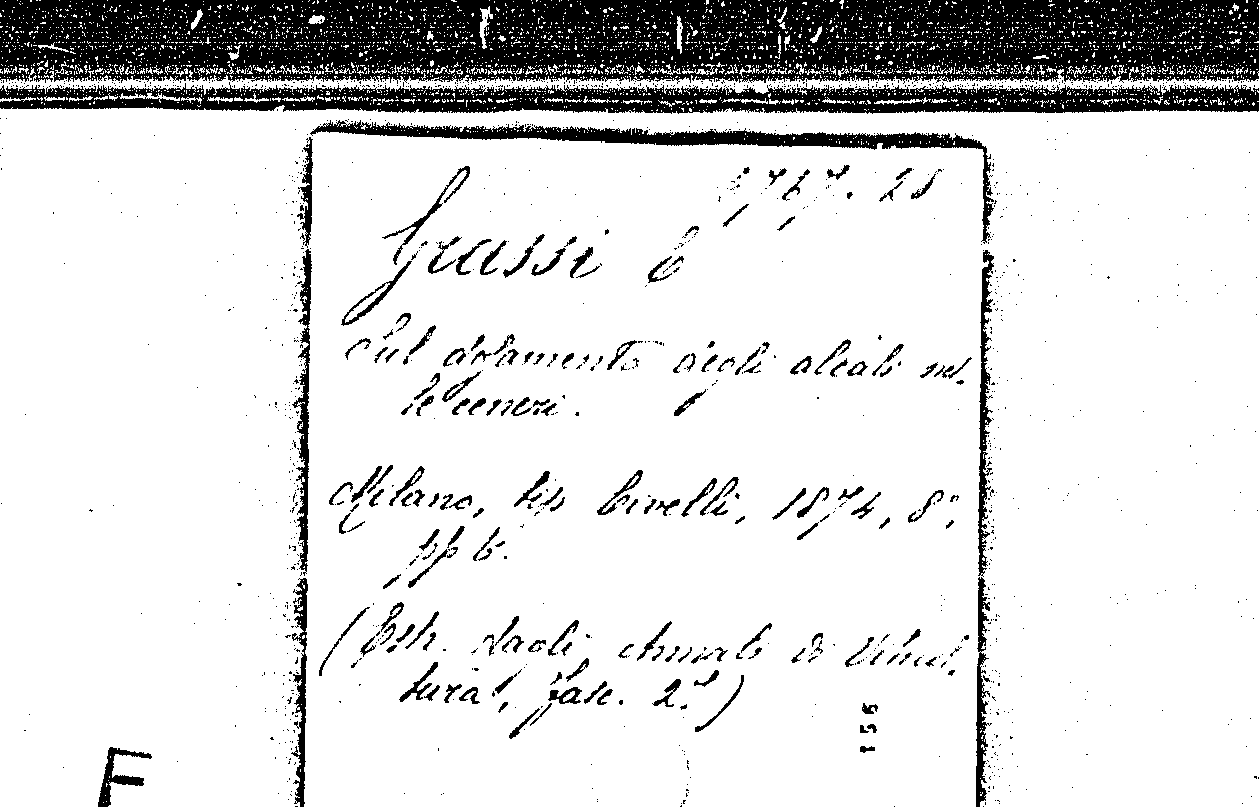 1767. 28
Grassi E
Sul dosamento degli alcali nel-
le ceneri.
Milano, tip Civelli, 1874, 8°,
pp 6.
(Estr. dagli Annali di Viticol-
tura, fasc. 2.°)
155
F